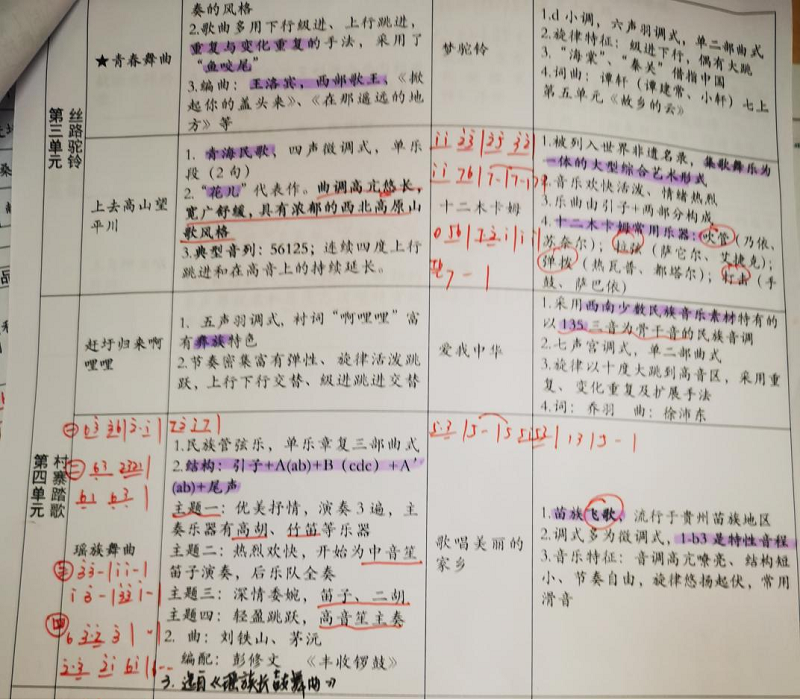 奏的风格
2.歌曲多用下行级进、上行跳进，
重复与变化重复的手法，采用了
“鱼咬尾”
3.编曲：王洛宾，西部歌王，《掀
起你的盖头来》、《在那遥远的地
方》等
★青春舞曲
梦驼铃
1.d 小调，六声羽调式，单二部曲式
2.旋律特征：级进下行，偶有大跳
3.“海棠”、“秦关”借指中国
4.词曲：谭轩（谭建常、小轩）七上
第五单元《故乡的云》
第三单元
丝路驼铃
上去高山望
平川
1. 青海民歌、四声徵调式，单乐
段（2 句）
2.“花儿”代表作。曲调高亢悠长，
宽广舒缓，具有浓郁的西北高原山
歌风格
3.典型音列：56125；连续四度上行
跳进和在高音上的持续延长。
十二木卡姆
1.被列入世界非遗名录，集歌舞乐为
一体的大型综合艺术形式
2.音乐欢快活泼、情绪热烈
3.乐曲由引子+两部分构成
4.十二木卡姆常用乐器：吹管（乃依、
苏奈尔）；拉弦（萨它尔、艾捷克）；
弹拨（热瓦普、都塔尔）；打击（手
鼓、萨巴依）
赶圩归来啊
哩哩
1. 五声羽调式，衬词“啊哩哩”富
有彝族特色
2.节奏密集富有弹性、旋律活泼跳
跃，上行下行交替、级进跳进交替
爱我中华
1.采用西南少数民族音乐素材特有的
以 135 三音为骨干音的民族音调
2.七声宫调式，单二部曲式
3.旋律以十度大跳到高音区，采用重
复、变化重复及扩展手法
4.词：乔羽 曲：徐沛东
第四单元
村寨踏歌
瑶族舞曲
1.民族管弦乐，单乐章复三部曲式
2.结构：引子+A(ab)+B（cdc）+A'
(ab)+尾声
主题一：优美抒情，演奏 3 遍，主
奏乐器有高胡、竹笛等乐器
主题二：热烈欢快，开始为中音笙
笛子演奏，后乐队全奏
主题三：深情委婉，笛子、二胡
主题四：轻盈跳跃，高音笙主奏
2. 曲：刘铁山、茅沅
编配：彭修文 《丰收锣鼓》
3. 选自《瑶族长鼓舞曲》
歌唱美丽的
家乡
1.苗族飞歌，流行于贵州苗族地区
2.调式多为徵调式，1-b3 是特性音程
3.音乐特征：音调高亢嘹亮、结构短
小、节奏自由，旋律悠扬起伏，常用
滑音